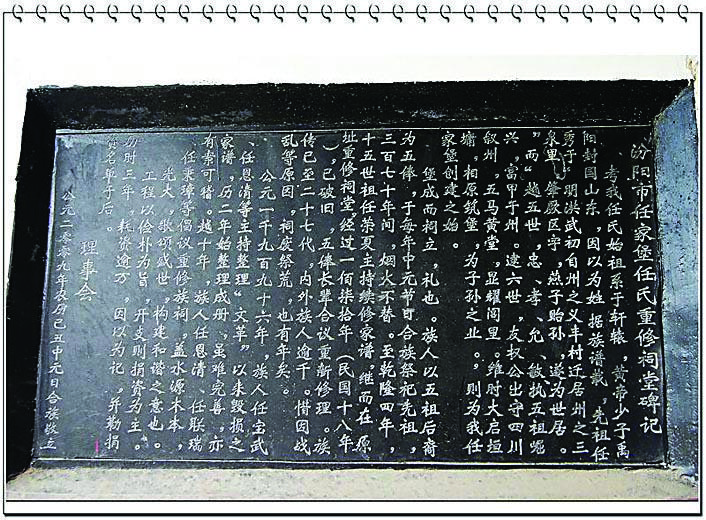 汾阳市任家堡任氏重修祠堂碑记
考我任氏始祖系于轩辕，黄帝少子禹
阳封国山东，因以为姓据族谱载，先祖任
秀于明洪武初自州之义丰村迁居州之三
泉里，肇厥区宇，燕子贻孙，遂为世居。
而”越五世，忠、孝、允、敏执五祖崛
兴，富甲于州。逮六世，友权公出守四川
叙州，五马黄堂，显耀阁里。维时大启垣
墉，相原筑堡，为子孙之业。，则为我任
家堡创建之始。
堡成而祠立，礼也。族人以五祖后裔
为五俸，于每年中元节日合族祭祀先祖，
三百七十年间，烟火不替。至乾隆四年，
十五世祖任荣夏主持续修家谱，继而在原
址重修祠堂，经过一佰柒拾年（民国十八年
），已破旧，五俸长辈合议重新修理。族
传已至二十七代，内外族人逾千。惜因战
乱等原因，祠废祭荒，也有年矣。
公元一千九百九十六年，族人任宝武
、任恩清等主持整理“文革”以来毁损之
家谱，历二年始整理成册，虽难完善，亦
有索可稽。越十年，族人任恩清任联瑞
、任秉璋等倡议重修族祠，盖水源本本，
光大，歌颂盛世，构建和谐之意也。
工程以俭朴为旨，开支则捐资为主。
历时三年，耗资逾万，因以为记，并勒捐
资名单于后。
理事会
公元二零零九年农历己丑中元日合族敬立